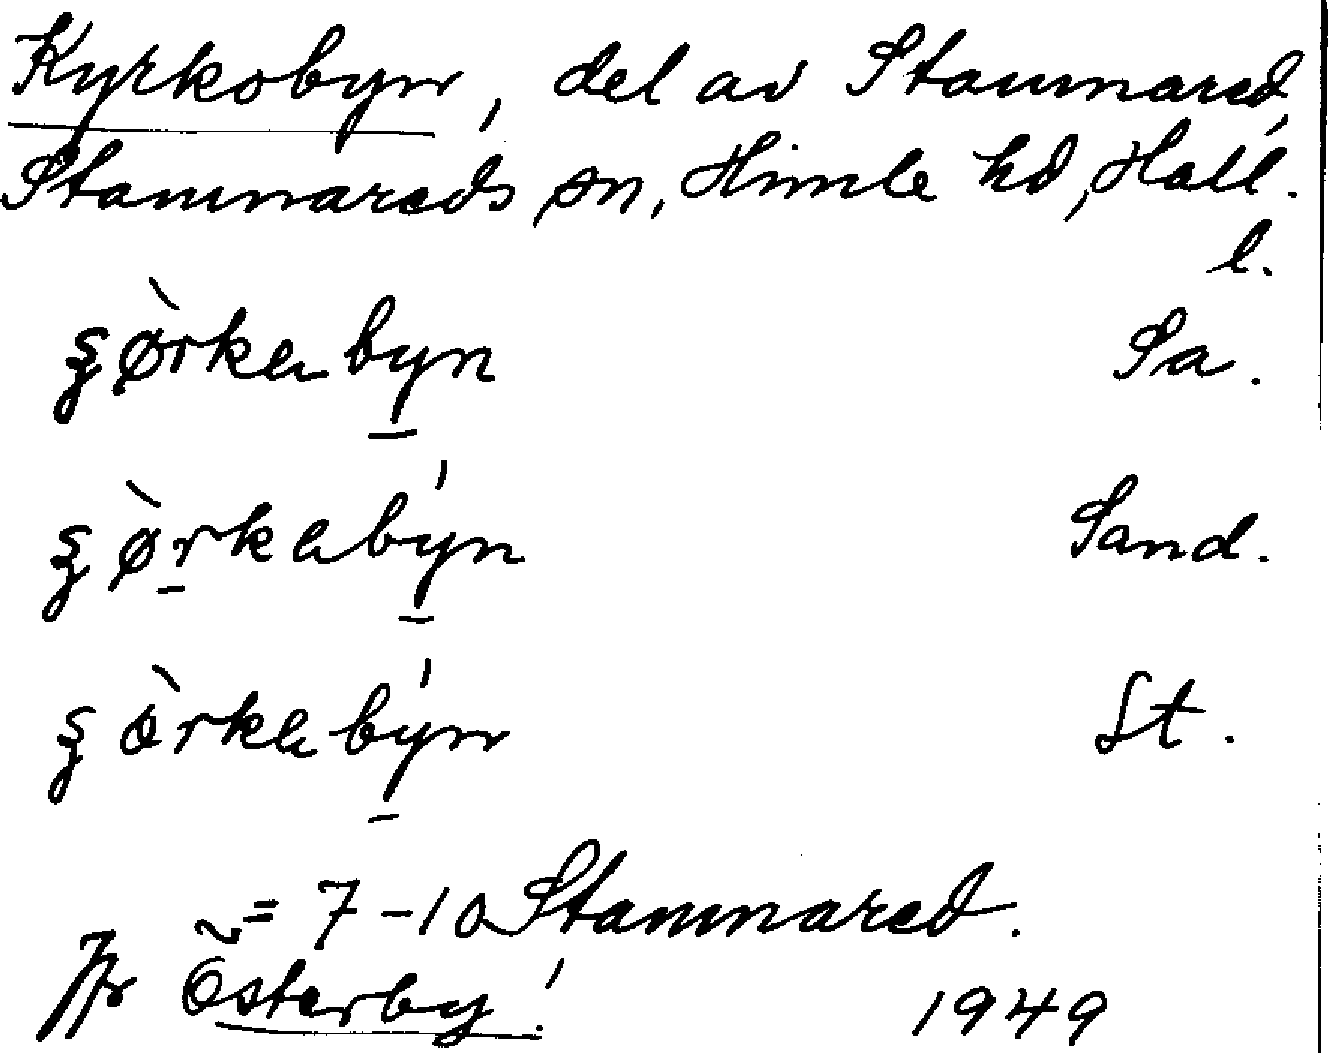 Kyrkobyn, del av Stamnared,
Stamnareds sn, Himle hd, Hall.
l.
ʂø̀rkabyn Sa.
ʂø̀rkabýn Sand.
ʂòrkabýn St.
= 7-10 Stamnared.
Jfr Österby!
1949